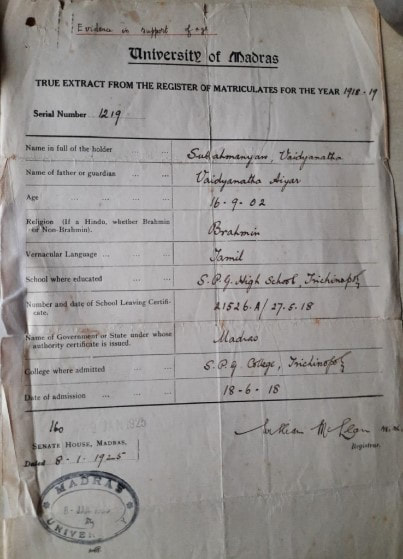 Evidence in support of age
University of Madras
TRUE EXTRACT FROM THE REGISTER OF MATRICULATES FOR THE YEAR 1918-19
Serial Number 1219
Name in full of the holder ... ... Subrahmanyan, Vaidyanatha
Name of father or guardian ... ... Vaidyanatha Aiyar
Age ... ... ... 16-9-02
Religion (If a Hindu, whether Brahmin
or Non-Brahmin). Brahmin
Vernacular Language ... ... ... Tamil
School where educated ... ... S.P.G. High School, Trichinopoly
Number and date of School Leaving Certifi-
cate. 21526.A/27.5.18
Name of Government or State under whose
authority certificate is issued. Madras
College where admitted ... ... S.P.G. College, Trichinopoly
Date of admission ... ... ... 18-6-18
160
1925
SENATE HOUSE, MADRAS,
Dated 8-1-1925
Registrar.
MADRAS
UNIVERSITY